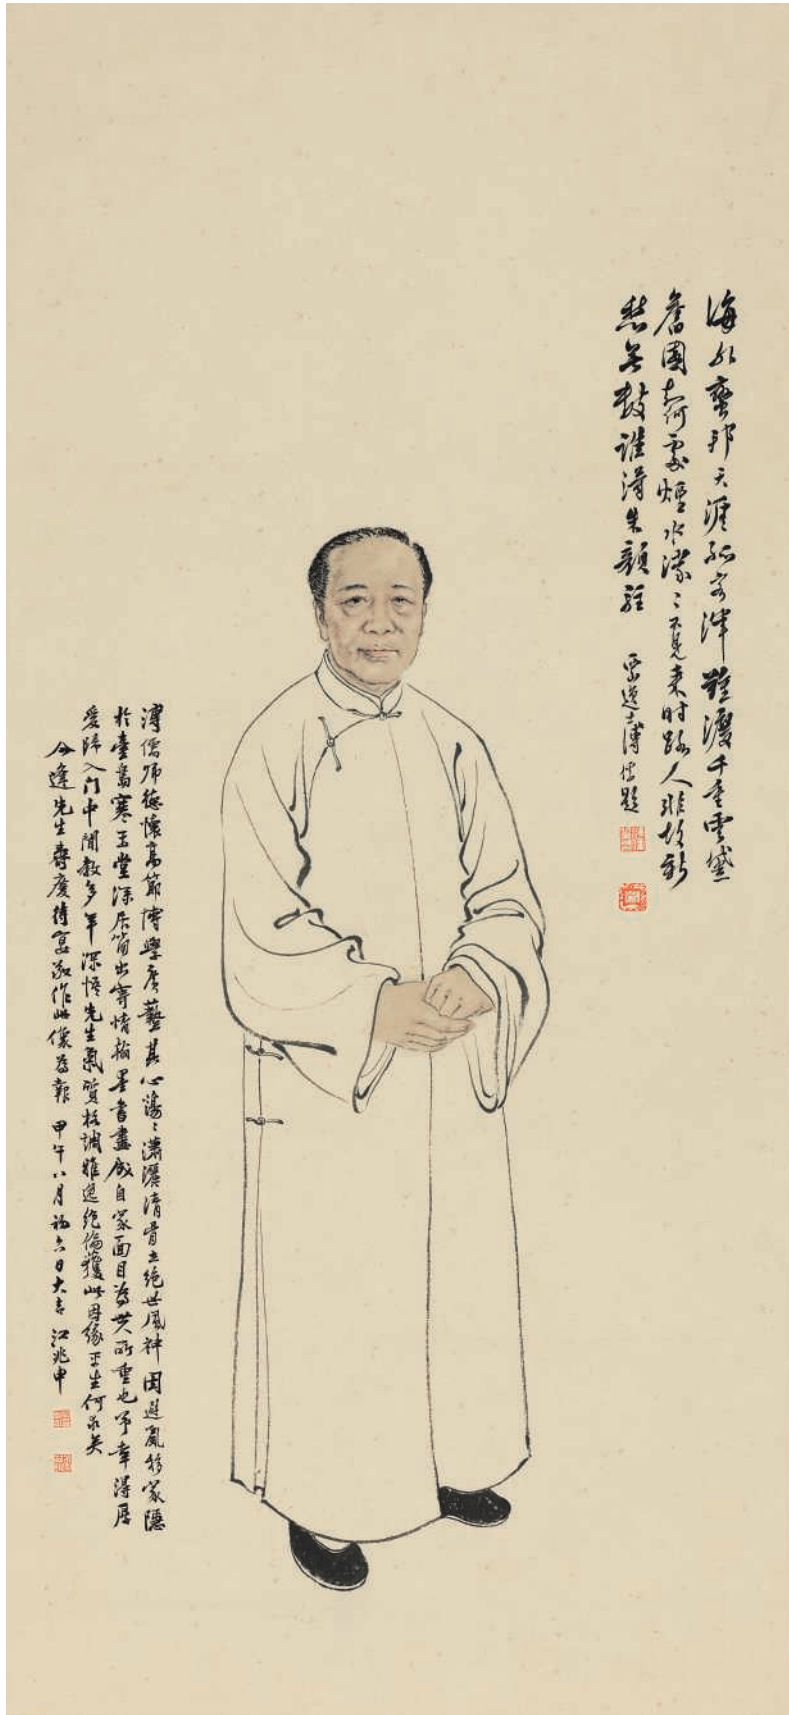 海外蠻邦天涯孤客津難渡千重雲岱
舊國知何處煙水濛〻不見來時路人非故新
愁無數誰得朱顏駐
西山逸士溥儒題
溥儒師德懷高節博學廣藝其心蕩〻瀟灑清骨立絕世風神因避亂移家隱
於臺島寒玉堂深居簡出寄情翰墨書畫成自家面目為世人所重也予幸得厚
愛歸入門中聞教多年深悟先生氣質格調雅逸絕倫獲此因緣平生何求矣
今逢先生壽慶待宴敬作此像為報 甲午八月初六日大吉 江兆申